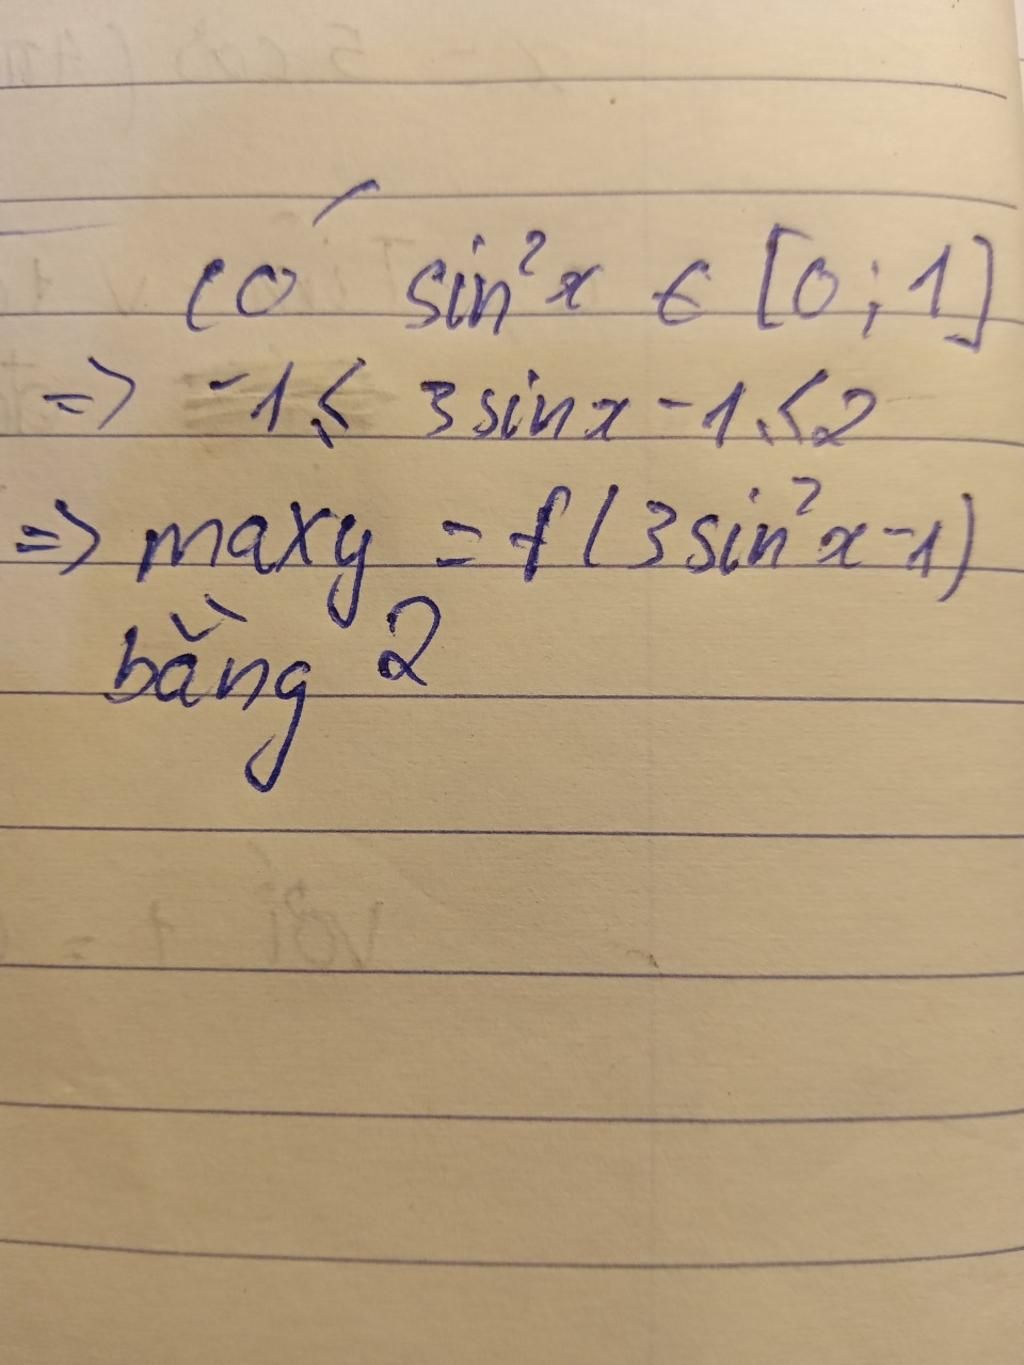 có sin²x ∈ [0; 1]
=> -1 ≤ 3sinx - 1 ≤ 2
=> maxy = f(3sin²x - 1)
bằng 2